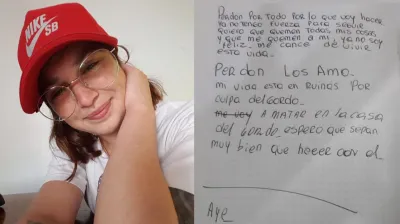 NIKE SB
PerdoN Por Todo Por lo que voy hacer
Ya no tengo Fuerza Para seguir
quiero que quemen todas mis cosas
y que me quemen a mi, ya no soy
Feliz. me canse de vivir
esta vida.
PerdoN Los Amo.
mi vida esta en Ruinas Por
culpa del Gordo.
me voy A MATAR en la casa
del espero que sepan
muy bien que hacer con el
Aye